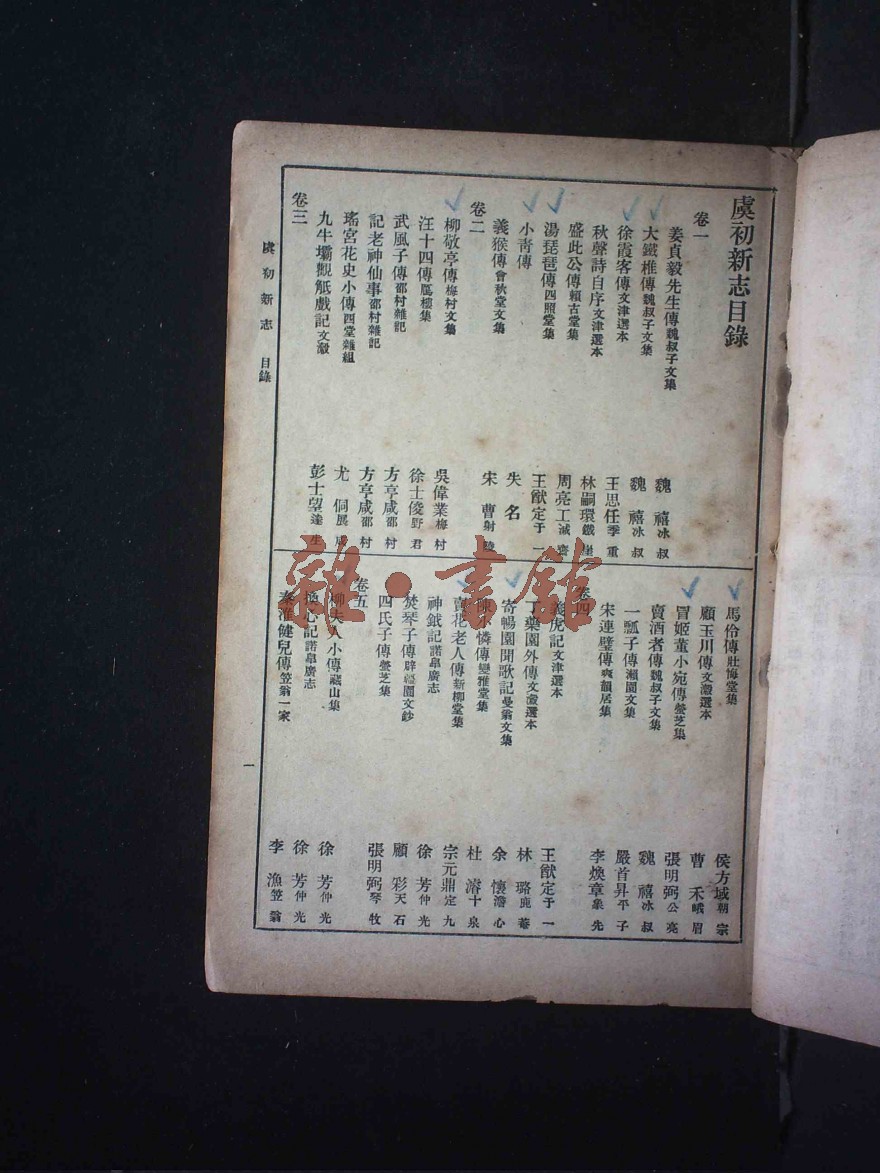 虞初新志目錄
卷一
姜貞毅先生傳魏叔子文集 魏禧冰叔
大鐵椎傳魏叔子文集 魏禧冰叔
徐霞客傳文津選本 王思任季重
秋聲詩自序文津選本 林嗣環鐵崖
盛此公傳賴古堂集 周亮工減齋
湯琵琶傳四照堂集 王猷定于一
小靑傳 失名
義猴傳會秋堂文集 宋曹射陵
卷二
柳敬亭傳梅村文集 吳偉業梅村
汪十四傳鴈樓集 徐士俊野君
武風子傳邵村雜記 方亨咸邵村
記老神仙事邵村雜記 方亨咸邵村
瑤宮花史小傳西堂雜組 尤侗展成
九牛壩觀觝戲記文瀔 彭士望達生
卷三
馬伶傳壯悔堂集 侯方域朝宗
顧玉川傳文瀔選本 曹禾峨眉
冒姬董小宛傳螢芝集 張明弼公亮
賣酒者傳魏叔子文集 魏禧冰叔
一瓢子傳瀨園文集 嚴首昇平子
宋連璧傳爽韻居集 李煥章象先
卷四
義虎記文津選本 王猷定于一
丁藥園外傳文瀔選本 林璐鹿菴
寄暢園聞歌記曼翁文集 余懷澹心
陳小憐傳變雅堂集 杜濬十泉
賣花老人傳新柳堂集 宗元鼎定九
神鉞記諾皋廣志 徐芳仲光
焚琴子傳辟疆園文鈔 顧彩天石
四氏子傳螢芝集 張明弼琴牧
卷五
柳夫人小傳藏山集 徐芳仲光
換心記諾皋廣志 徐芳仲光
秦淮健兒傳笠翁一家 李漁笠翁
虞初新志 目錄
一
雜·書館